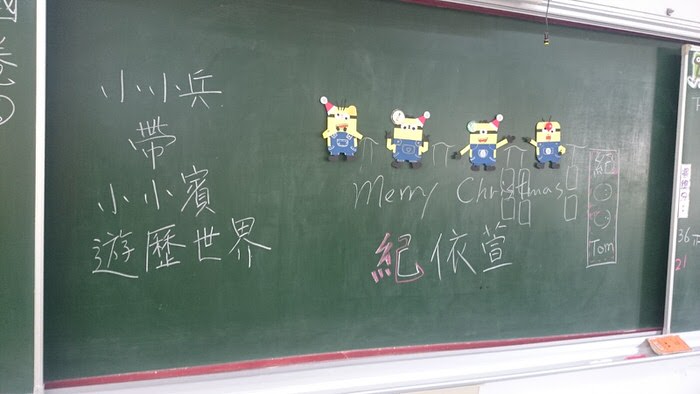 小小兵
帶
小小賓
遊歷世界
Merry Christmas
紀依萱
紀
Tom
36
21